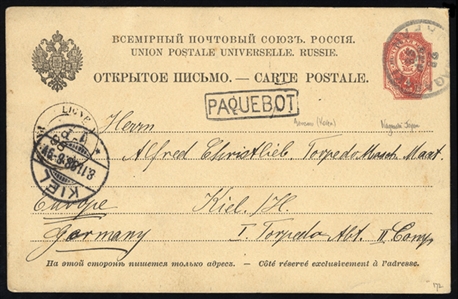 ВСЕМІРНЫЙ ПОЧТОВЫЙ СОЮЗЪ. РОССІЯ.
UNION POSTALE UNIVERSELLE. RUSSIE.
ОТКРЫТОЕ ПИСЬМО. — CARTE POSTALE.
PAQUEBOT
Herrn
Alfred Christlieb Torpedo Masch. Maat.
Europe Kiel. /H
Germany I. Torpedo Abt. II Comp
KIEL
На этой сторонѣ пишется только адресъ. — Côté réservé exclusivement à l'adresse.